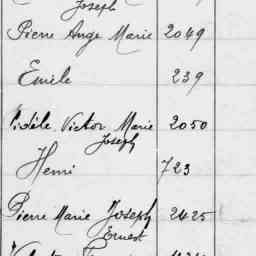 Joseph
Pierre Ange Marie 2049
Emile 239
Fidèle Victor Marie 2050
Joseph
Henri 723
Pierre Marie Joseph 2425
Ernest